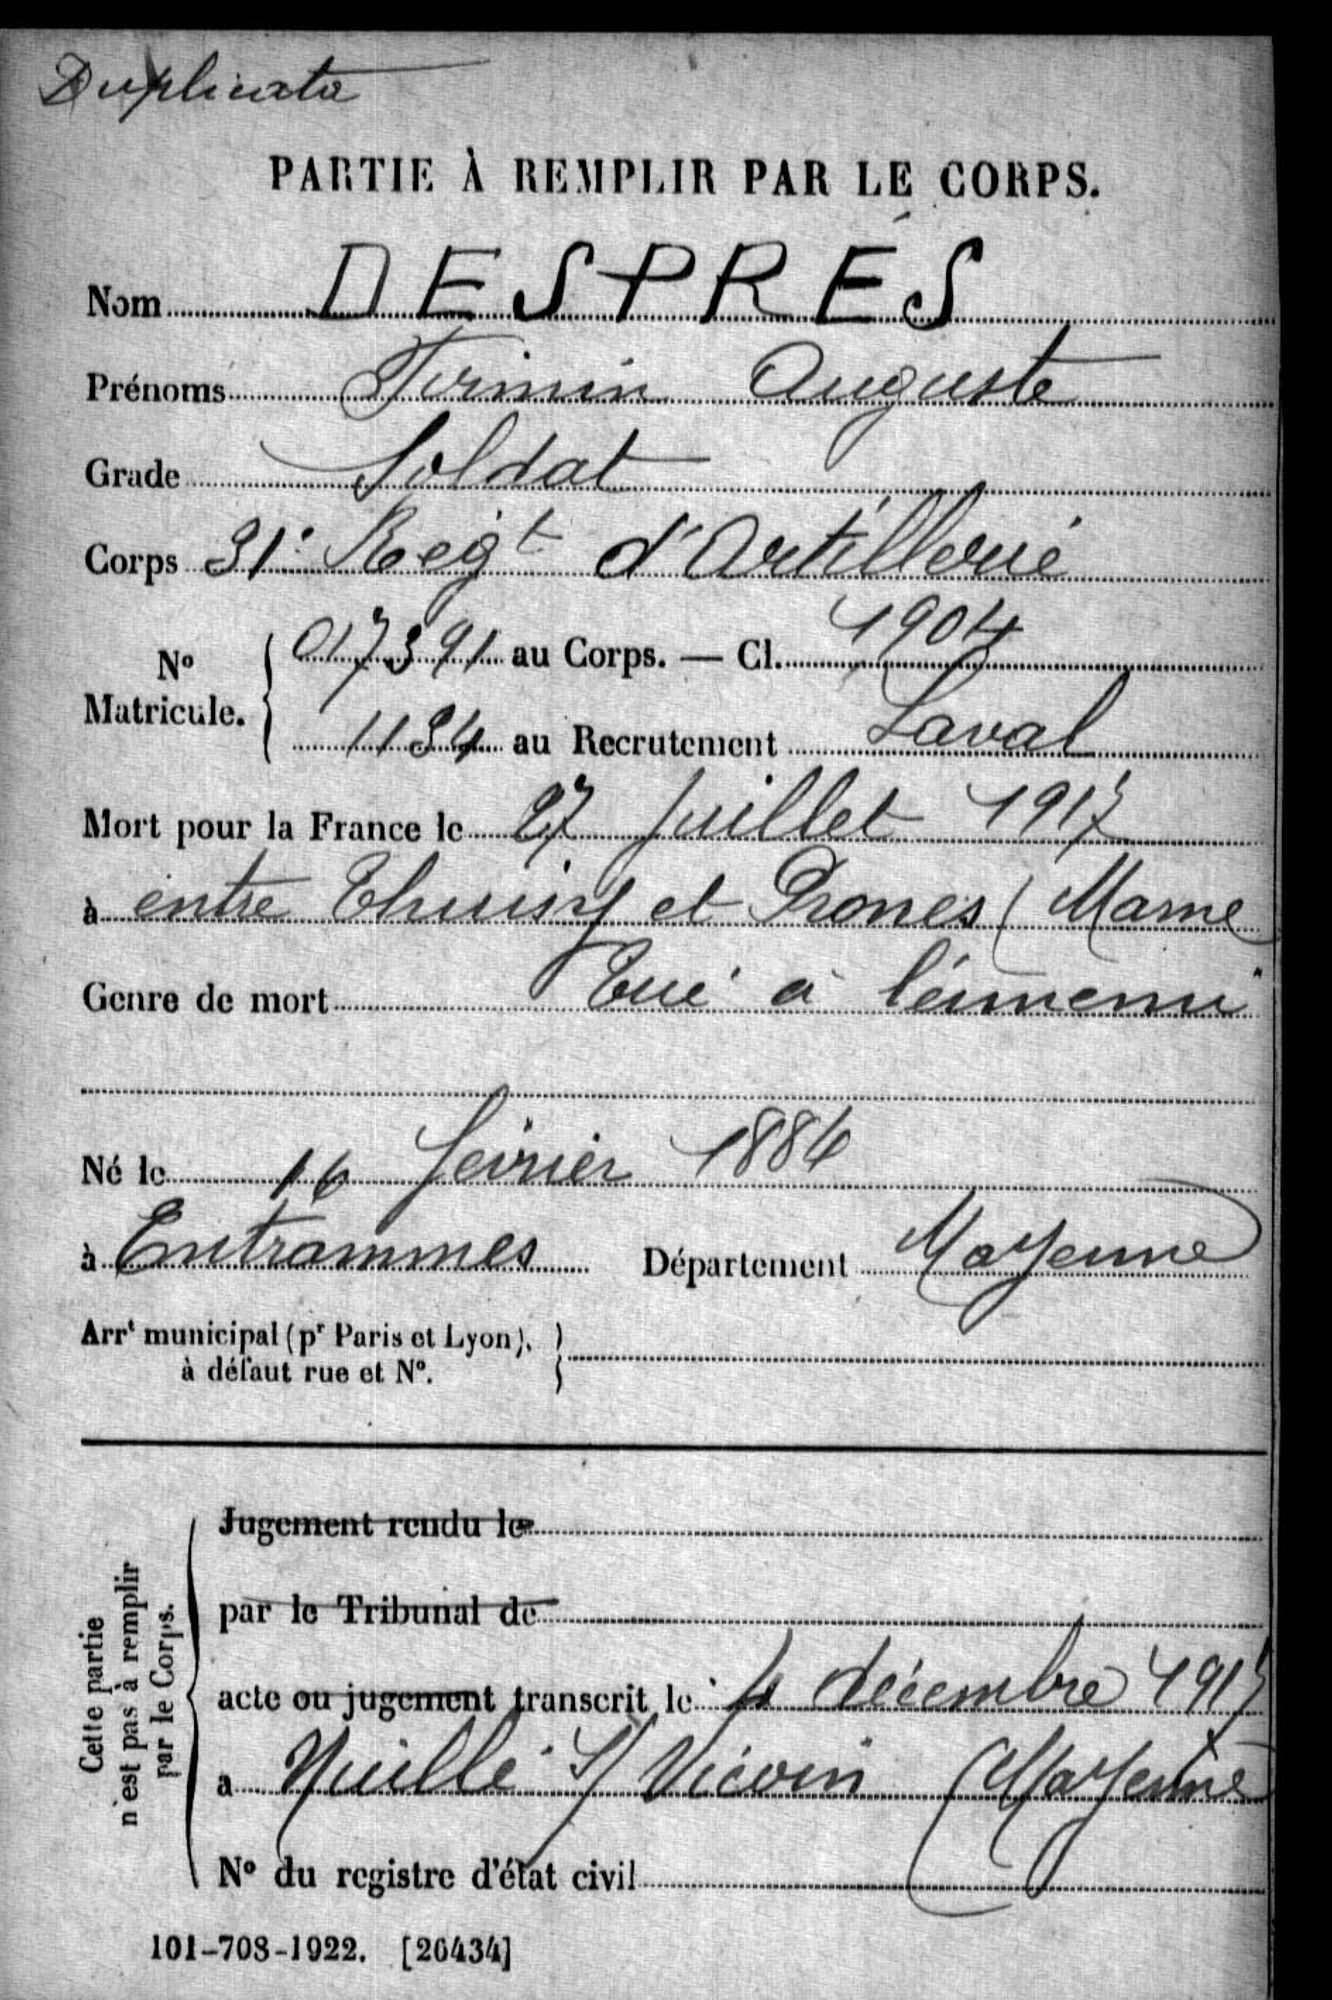 Duplicata
PARTIE À REMPLIR PAR LE CORPS.
Nom DESPRÉS
Prénoms Firmin Auguste
Grade Soldat
Corps 31e Régt d'Artillerie
No Matricule. 017391 au Corps. — Cl. 1904
1134 au Recrutement Laval
Mort pour la France le 27 Juillet 1917
à entre Thuisy et Prones (Marne
Genre de mort Tué à l'ennemi
Né le 16 février 1884
à Entrammes Département Mayenne
Arrt municipal (pr Paris et Lyon),
à défaut rue et No.
Cette partie
n'est pas à remplir
par le Corps.
Jugement rendu le
par le Tribunal de
acte ou jugement transcrit le 4 décembre 1917
a Nuillé s/ Vicoin (Mayenne
No du registre d'état civil
101-708-1922. [26434]